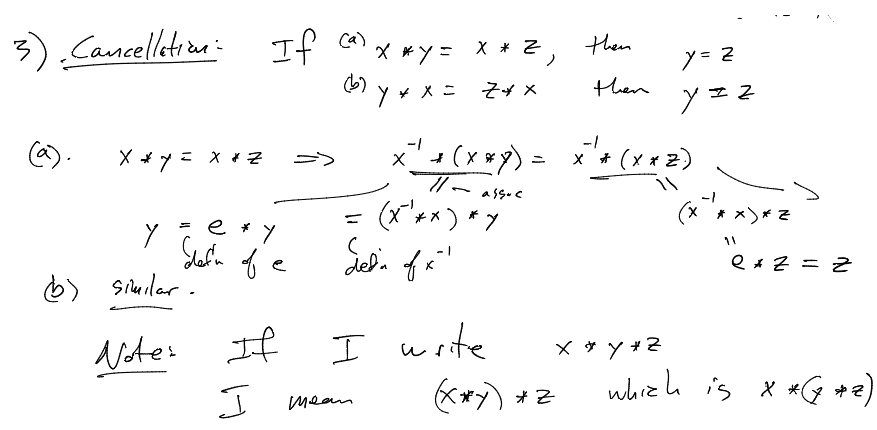 3) Cancellation: If (a) x * y = x * z, then y = z
(b) y * x = z * x then y = z
(a). x * y = x * z => x⁻¹ * (x * y) = x⁻¹ * (x * z)
// - assoc \\
y = e * y = (x⁻¹ * x) * y (x⁻¹ * x) * z
defn of e defn of x⁻¹ " e * z = z
(b) similar.
Note: If I write x * y * z
I mean (x * y) * z which is x * (y * z)